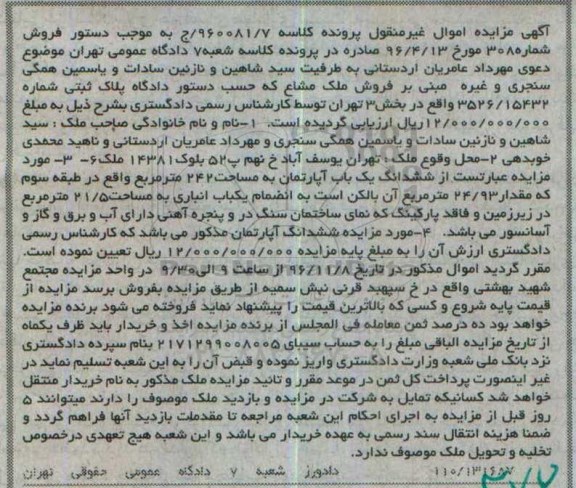 آگهی مزایده اموال غیرمنقول پرونده کلاسه ۹۶۰۰۸۱/۷/ج به موجب دستور فروش
شماره۳۰۸ مورخ ۹۶/۴/۱۳ صادره در پرونده کلاسه شعبه۷ دادگاه عمومی تهران موضوع
دعوی مهرداد عامریان اردستانی به طرفیت سید شاهین و نازنین سادات و یاسمین همگی
سنجری و غیره مبنی بر فروش ملک مشاع که حسب دستور دادگاه پلاک ثبتی شماره
۳۵۲۶/۱۵۴۳۲ واقع در بخش۳ تهران توسط کارشناس رسمی دادگستری بشرح ذیل به مبلغ
۱۲/۰۰۰/۰۰۰/۰۰۰ریال ارزیابی گردیده است. ۱-نام و نام خانوادگی صاحب ملک : سید
شاهین و نازنین سادات و یاسمین همگی سنجری و مهرداد عامریان اردستانی و ناهید محمدی
خویدهی ۲-محل وقوع ملک : تهران یوسف آباد خ نهم پ۵۲ بلوک۱۴۳۸۱ ملک۶- ۳- مورد
مزایده عبارتست از ششدانگ یک باب آپارتمان به مساحت۲۴۲ مترمربع واقع در طبقه سوم
که مقدار۲۴/۹۳ مترمربع آن بالکن است به انضمام یکباب انباری به مساحت۲۱/۵ مترمربع
در زیرزمین و فاقد پارکینگ که نمای ساختمان سنگ در و پنجره آهنی دارای آب و برق و گاز و
آسانسور می باشد. ۴-مورد مزایده ششدانگ آپارتمان مذکور می باشد که کارشناس رسمی
دادگستری ارزش آن را به مبلغ پایه مزایده ۱۲/۰۰۰/۰۰۰/۰۰۰ ریال تعیین نموده است.
مقرر گردید اموال مذکور در تاریخ ۹۶/۱۱/۸ از ساعت ۹ الی۹/۳۰ در واحد مزایده مجتمع
شهید بهشتی واقع در خ سپهبد قرنی نبش سمیه از طریق مزایده بفروش برسد مزایده از
قیمت پایه شروع و کسی که بالاترین قیمت را پیشنهاد نماید فروخته می شود برنده مزایده
خواهد بود ده درصد ثمن معامله فی المجلس از برنده مزایده اخذ و خریدار باید ظرف یکماه
از تاریخ مزایده الباقی مبلغ را به حساب سیبای ۲۱۷۱۲۹۹۰۰۸۰۰۵ بنام سپرده دادگستری
نزد بانک ملی شعبه وزارت دادگستری واریز نموده و قبض آن را به این شعبه تسلیم نماید در
غیر اینصورت پرداخت کل ثمن در موعد مقرر و تائید مزایده ملک مذکور به نام خریدار منتقل
خواهد شد کسانیکه تمایل به شرکت در مزایده و بازدید ملک موصوف را دارند میتوانند ۵
روز قبل از مزایده به اجرای احکام این شعبه مراجعه تا مقدمات بازدید آنها فراهم گردد و
ضمنا هزینه انتقال سند رسمی به عهده خریدار می باشد و این شعبه هیچ تعهدی درخصوص
تخلیه و تحویل ملک موصوف ندارد.
۱۱۰/۱۳۱۶۵۷ دادورز شعبه ۷ دادگاه عمومی حقوقی تهران